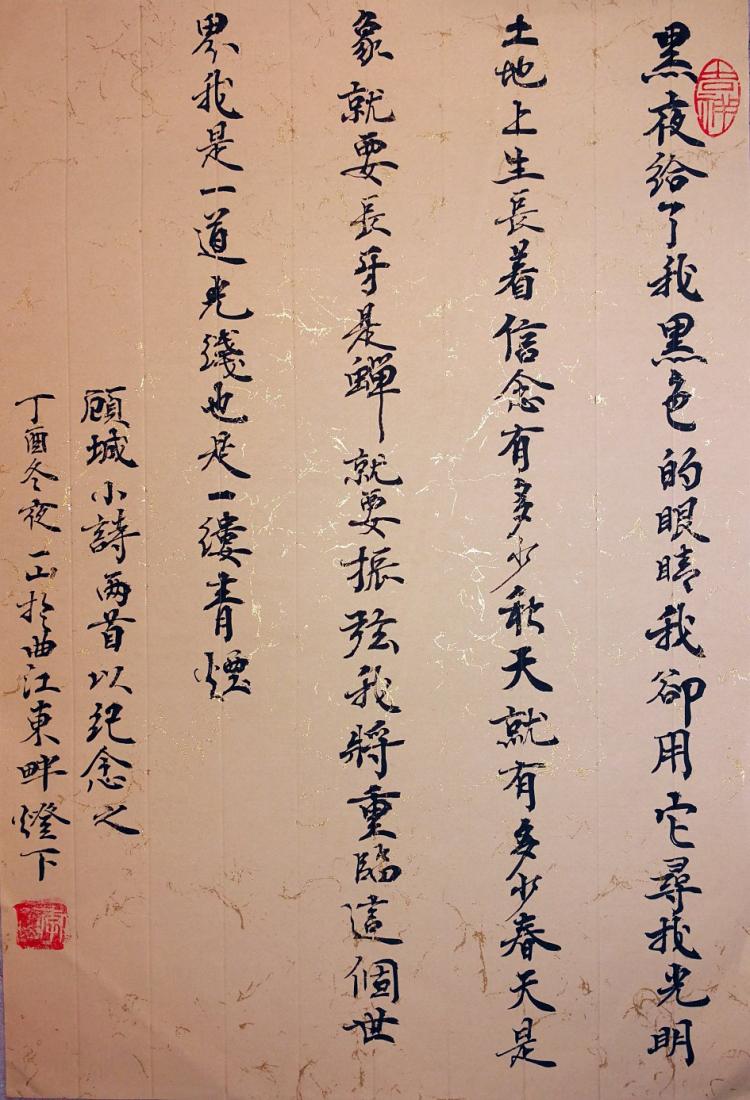 黑夜給了我黑色的眼睛我卻用它尋找光明
土地上生長着信念有多少秋天就有多少春天是
象就要長牙是蟬就要振弦我將重臨這個世
界我是一道光綫也是一縷青煙
顧城小詩兩首以紀念之
丁酉冬夜一山於曲江東畔燈下